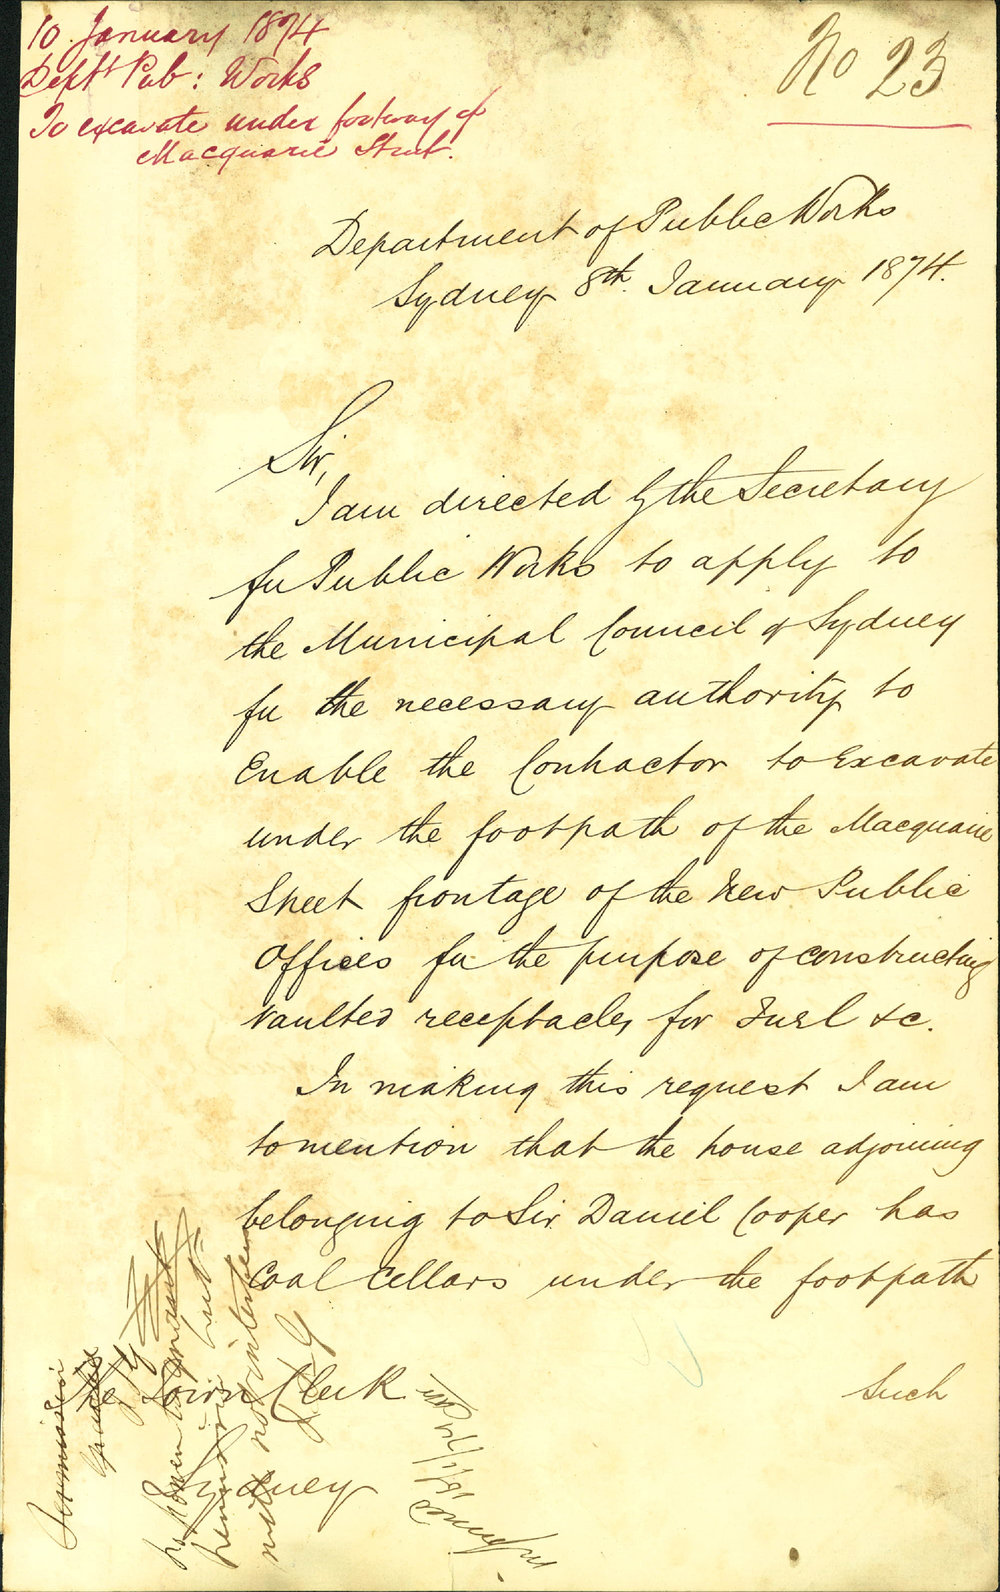 10 January 1874
Dept Pub: Works
To excavate under footway of
Macquarie Street.
No 23
Department of Public Works
Sydney 8th. January 1874.
Sir,
I am directed by the Secretary
for Public Works to apply to
the Municipal Council of Sydney
for the necessary authority to
Enable the Contractor to Excavate
under the footpath of the Macquarie
Street frontage of the New Public
Offices for the purpose of constructing
Vaulted receptacles for Fuel &c.
In making this request I am
to mention that the house adjoining
belonging to Sir Daniel Cooper has
Coal Cellars under the footpath
Such
The Town Clerk
Sydney
Permission
granted
no power to grant
permission but
will not interfere
Informed